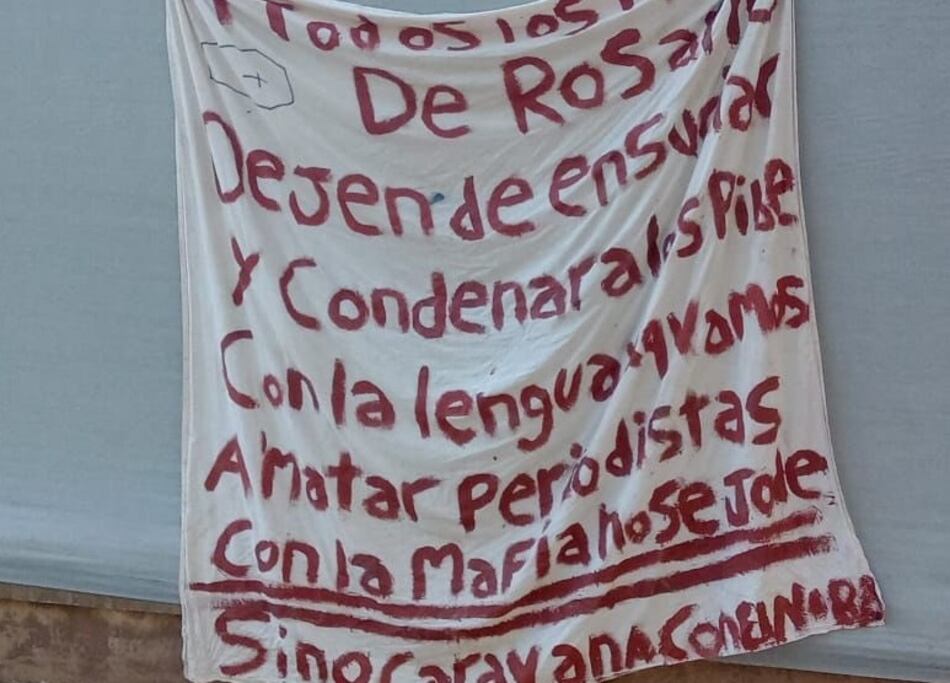 Y Todos los
De Rosario
Dejen de ensuciar
Y Condenar a los Pibe
Con la lengua vamos
A Matar Periodistas
Con la Mafia no Se Jode
Sino Caravana Con